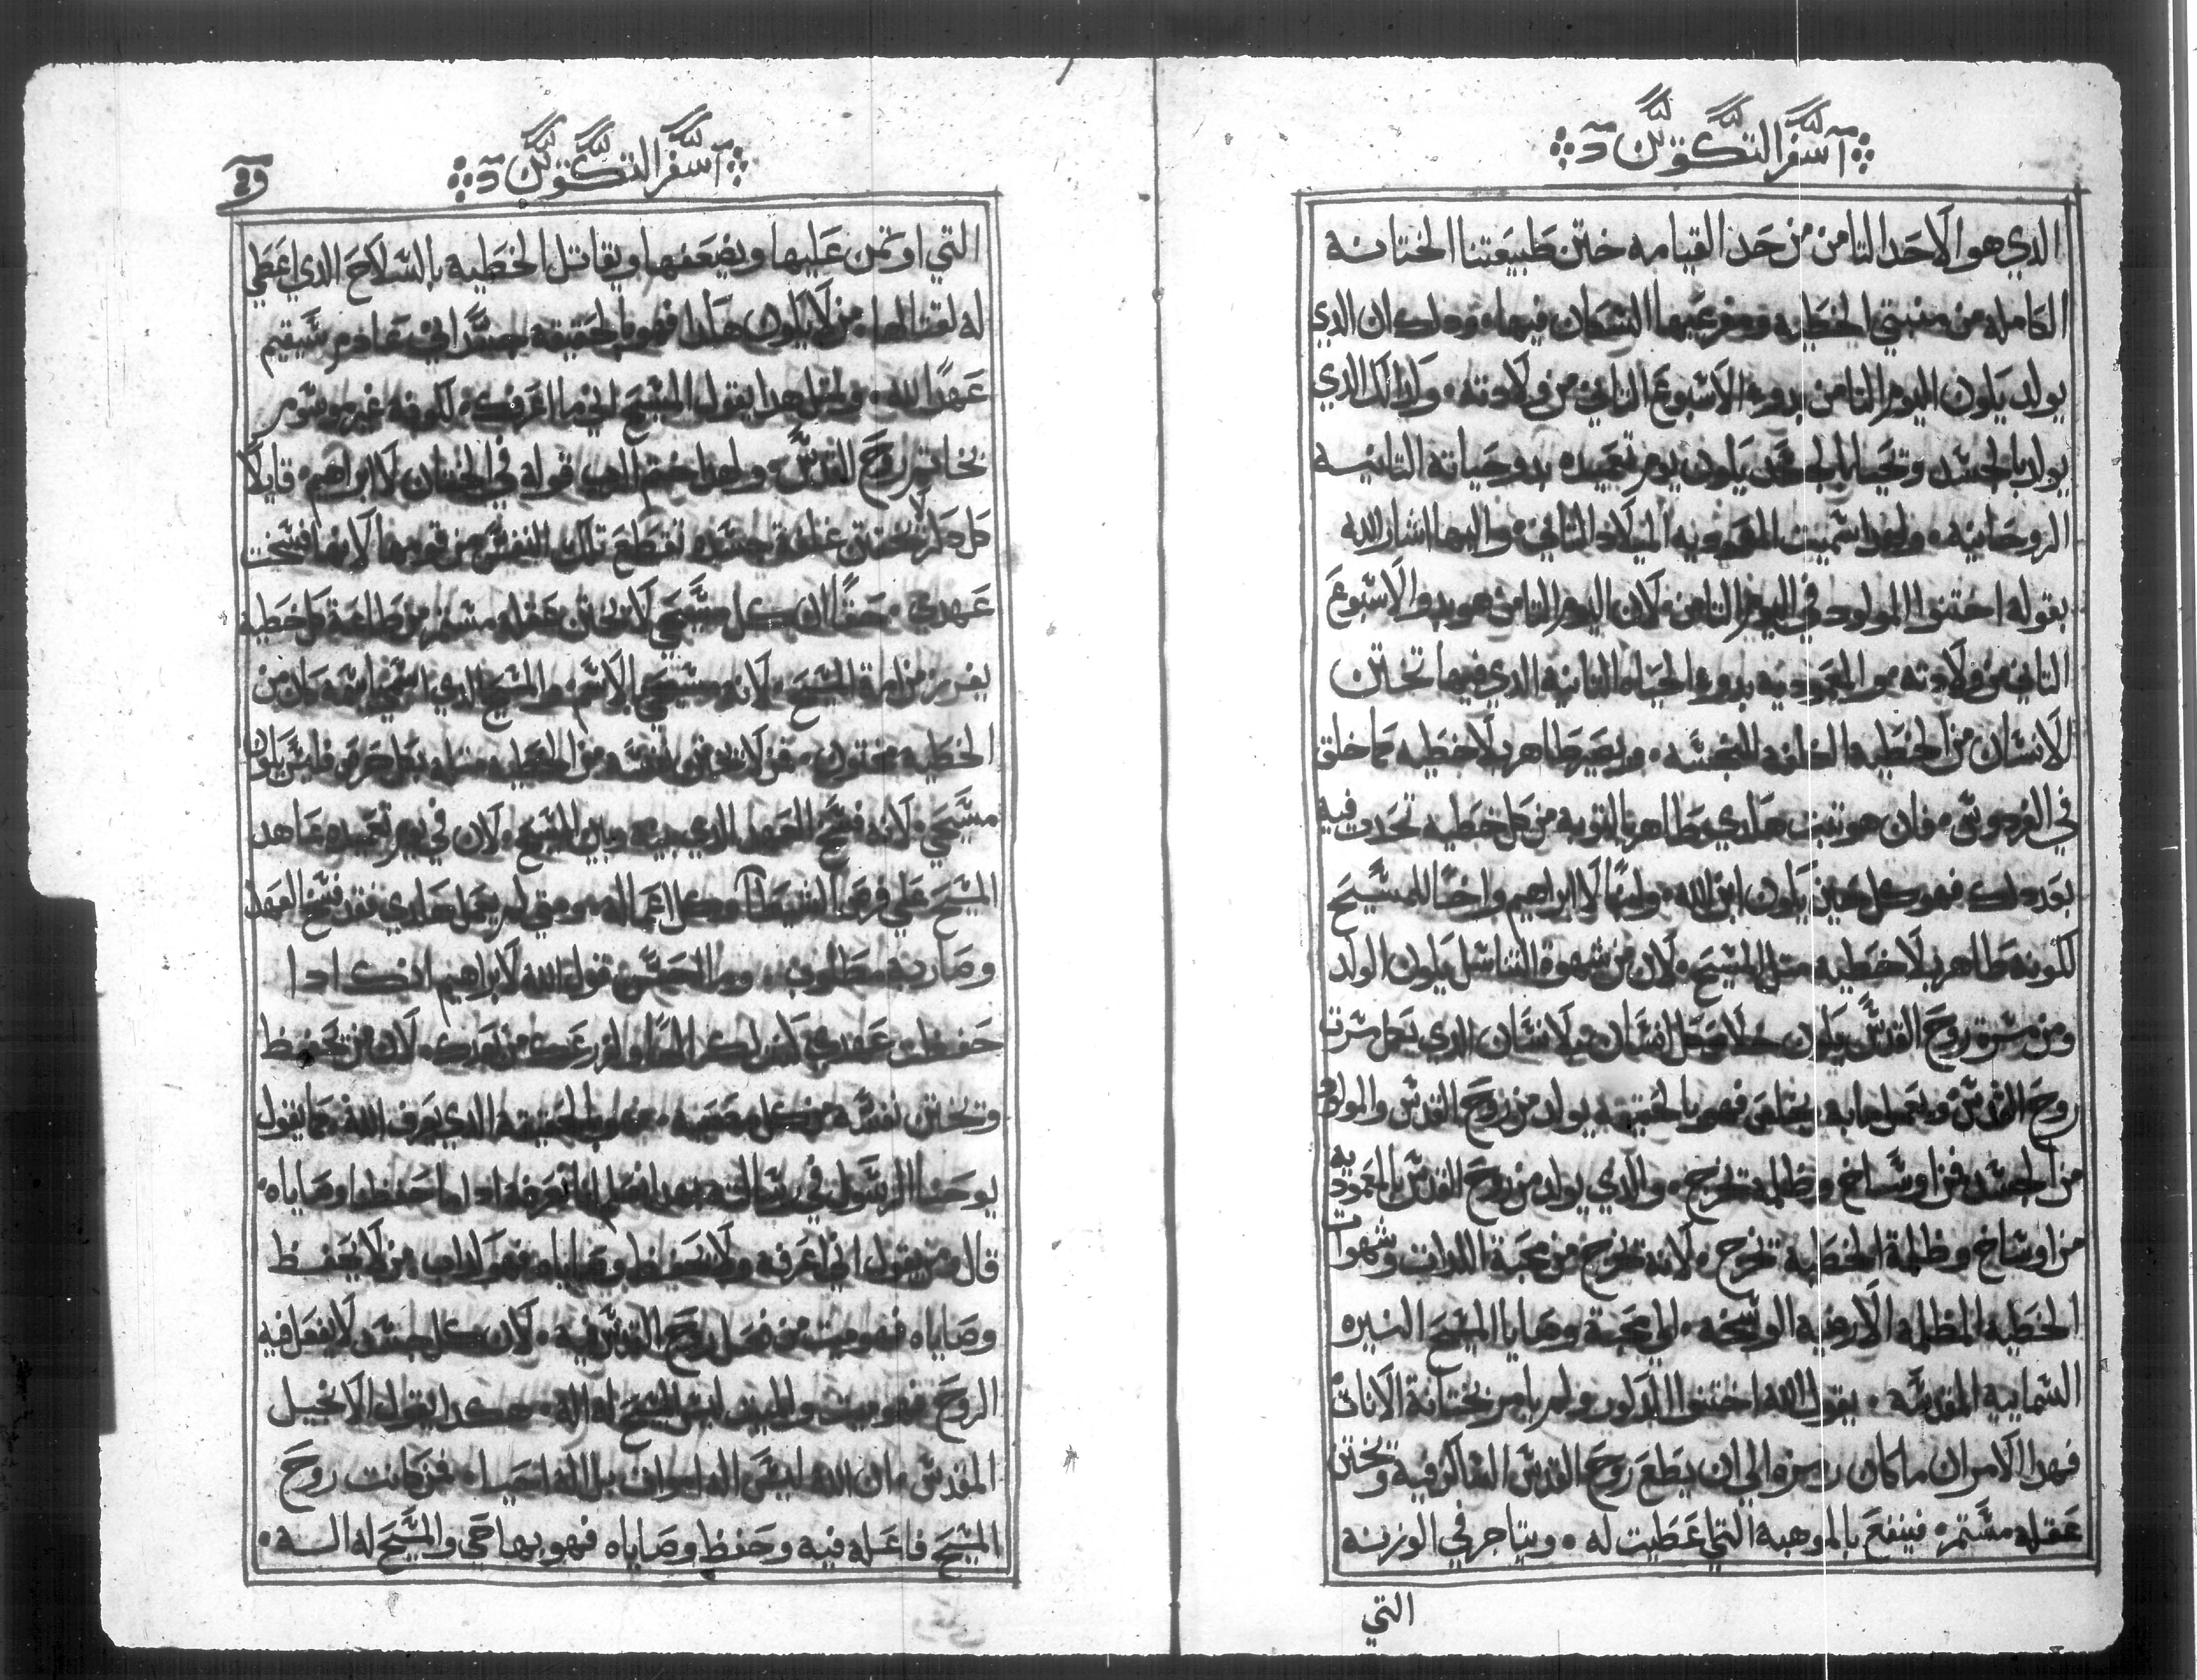 سفر التكوين
الدي هو الاحد التامن من حد القيامه ختن طبيعتنا الختانه
الكامله من منبتي الخطيه وفرعيها الشكان فيها ودلك ان الدي
يولد يكون اليوم التامن بدوء الاسبوع التاني من ولادته وكدالك الدي
يولد بالجسد وتحيا يكون يوم تعميده بدو حياته التانيه
الروحانيه ولهدا سميت المعموديه الميلاد التاني واليها اشار الله
بقوله اختنوا المولود في اليوم التامن لان اليوم التامن هو بدو الاسبوع
التاني من ولادته والمعموديه بدوء الحياه التانيه الدي فيها تختن
الانسان من الخطيه النجسه ويصير طاهر بلا خطيه كما خلق
في الفردوس فان هو تبت هكدي طاهر بالتوبه من كل خطيه تحدت فيه
بعد دلك فهو كل حين يكون ابن الله وابنًا لابراهيم واخًا للمسيح
لكونه طاهر بلا خطيه متل المسيح لان من شهوة التناسل يكون الولد
ومن مسرة روح القدس يكون خلاص كل انسان فالانسان الدي يكمل مسرت
روح القدس ويعمل مابه يخلص فهو بالحقيقه يولد من روح القدس والمولود
من الجسد فمن اوساخ وظلمه تخرج والدي يولد من روح القدس بالمعموديه
من اوساخ وظلمة الخطيه تخرج لانه تخرج من محبة اللدات وشهوات
الخطيه المظلمه الارضيه الوسخه الي محبة وصايا المسيح النيره
السماييه المقدسه يقول الله اختنوا الدكور ولم يامر بختانة الانات
فهدا الامر ان ماكان رمزه الي ان يطع روح القدس الساكن فيه وتختن
عقله مستمر فينفع بالموهبه التي عطيت له ويتاجر في الوزنه
التي
سفر التكوين
التي اوتمن عليها ويضعفها ويقاتل الخطيه بالسلاح الدي اعطي
له لقتالها من لا يكون هكدا فهو بالحقيقه عادم يستقيم
عهد الله ولاجل هدا يقول المسيح اني ما اعرفك لكونه غير موسوم
بخاتم روح القدس ولهدا ختم الرب قوله في الختان لابراهيم قايلًا
كل دكر لا تختتن غلفة جسده تقطع تلك النفس من قومها لانها فسخت
عهدي حقًا ان كل مسيحي لا تختتن عقله مستمر من طاعة كل خطيه
لانه مسيحي بالاسم والمسيح الدي
الخطيه مختون فمن لا تختن نفسه من الخطيه متله فليس يكون
مسيحي لانه فسخ العهد الدي بينه وبين المسيح لان في يوم تعميده عاهد
المسيح علي فرض الشيطان وكل اعماله ومتي لم يعمل هكدي فقد فسخ العهد
وصار به مطلوب وما احسن قول الله لابراهيم انك ادا
حفظت عهدي اكن لك الهًا ولزرعك من بعدك لان من تحفظ
وتختن نفسه من كل معصيه فهو بالحقيقه الدي يعرف الله كما يقول
يوحنا الرسول في رسالته بهدا نعلم اننا نعرفه ادا ما حفظنا وصاياه
قال من يقول اني اعرفه ولا يحفظ وصاياه فهو كداب من لا يحفظ
وصاياه فهو ميت من فعل روح القدس فيه لان كل جسد لا يفعل فيه
الروح فهو ميت والميت ليس المسيح له اله هكدا يقول الانجيل
المقدس ان الله ليس اله اموات بل اله احيا فمن كانت روح
المسيح فاعله فيه وحفظ وصاياه فهو بها حي والمسيح له اله